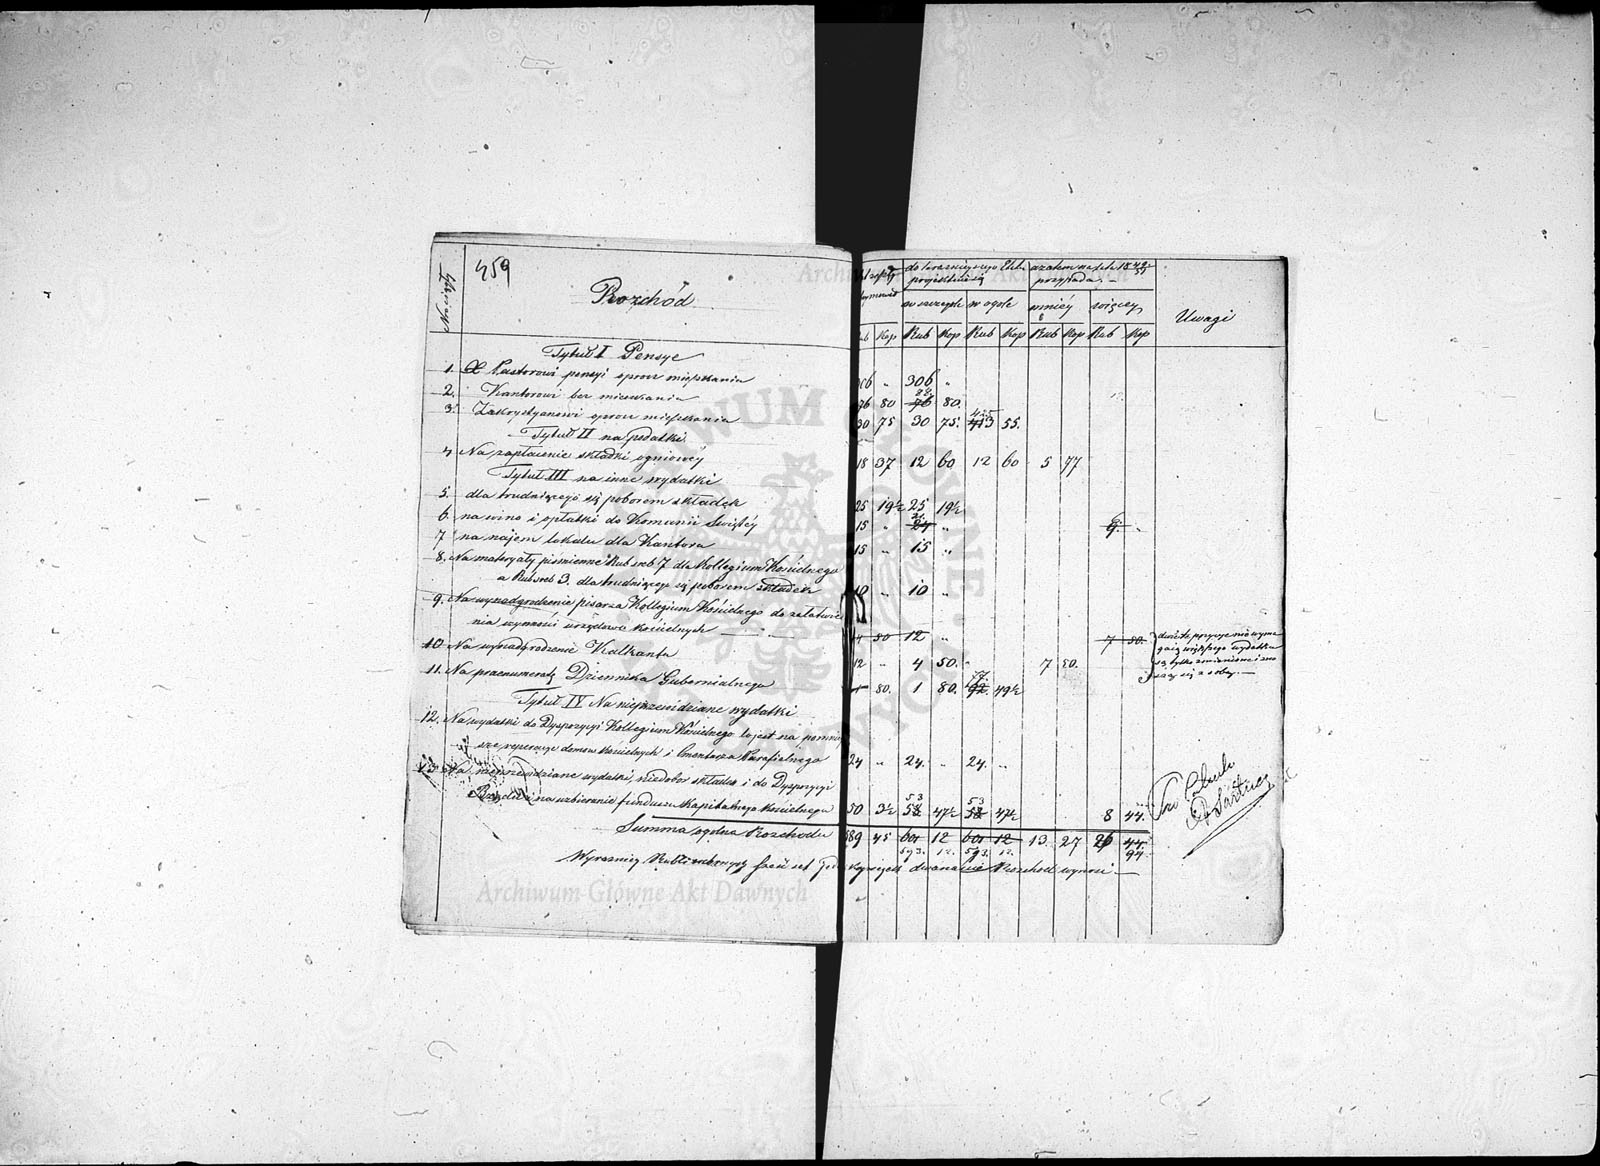 459
Rozchód
do teraźniejszego Etatu
projektuie się
a zatem na lata 18 49/51
przypada
w szczególe w ogóle mniéj więcej
Uwagi
Kop Rub Kop Rub Kop Rub Kop Rub Kop
Tytuł I Pensye
1. Pastorowi pensyi oprócz mieszkania 306 „ 306 „
2. Kantorowi bez mieszkania 76 80 76 80.
3. Zakrystyanowi oprócz mieszkania 30 75 30 75. 413 55.
Tytuł II na podatki
4 Na zapłacenie składki ogniowéy 18 37 12 60 12 60 5 77
Tytuł III na inne wydatki
5. dla trudniącego się poborem składek 25 19½ 25 19½
6. na wino i opłatki do Komunii Swiętéy 15 „ 24 „ 9. „
7 na najem lokalu dla Kantora 15 „ 15 „
8. Na materyały piśmienne Rub sreb 7 dla Kollegium Kościelnego
a Rub sreb 3. dla trudniącego się poborem składek 10 „ 10 „
9. Na wynadgrodzenie pisarza Kollegium Kościelnego do załatwie
nia czynności urzędowo kościelnych 4 50 12 „ 7 50.
10 Na wynadgrodzenie Kalkanta 12 „ 4 50. 7 50.
11. Na praenumeratę Dziennika Gubernialnego 1 80. 1 80. 92 49½
Tytuł IV Na nieprzewidziane wydatki
12. Na wydatki do Dyspozycyi Kollegium Kościelnego to jest na pomniey
sze reperacye domów kościelnych i Cmentarza Parafialnego 24 „ 24. „ 24. „
13 Na nieprzewidziane wydatki, niedobór składek i do Dyspozycyi
na uzbieranie funduszu Kapitalnego kościelnego 50 3½ 58 47½ 58 47½ 8 44.
Summa ogólna Rozchodu 589 45 601 12 601 12 13 27 26 44
593. 12. 593. 12. 94
Wyraźniey Rubli srebrnych sześć set jeden kopiejek dwanaście Rozchód wynosi